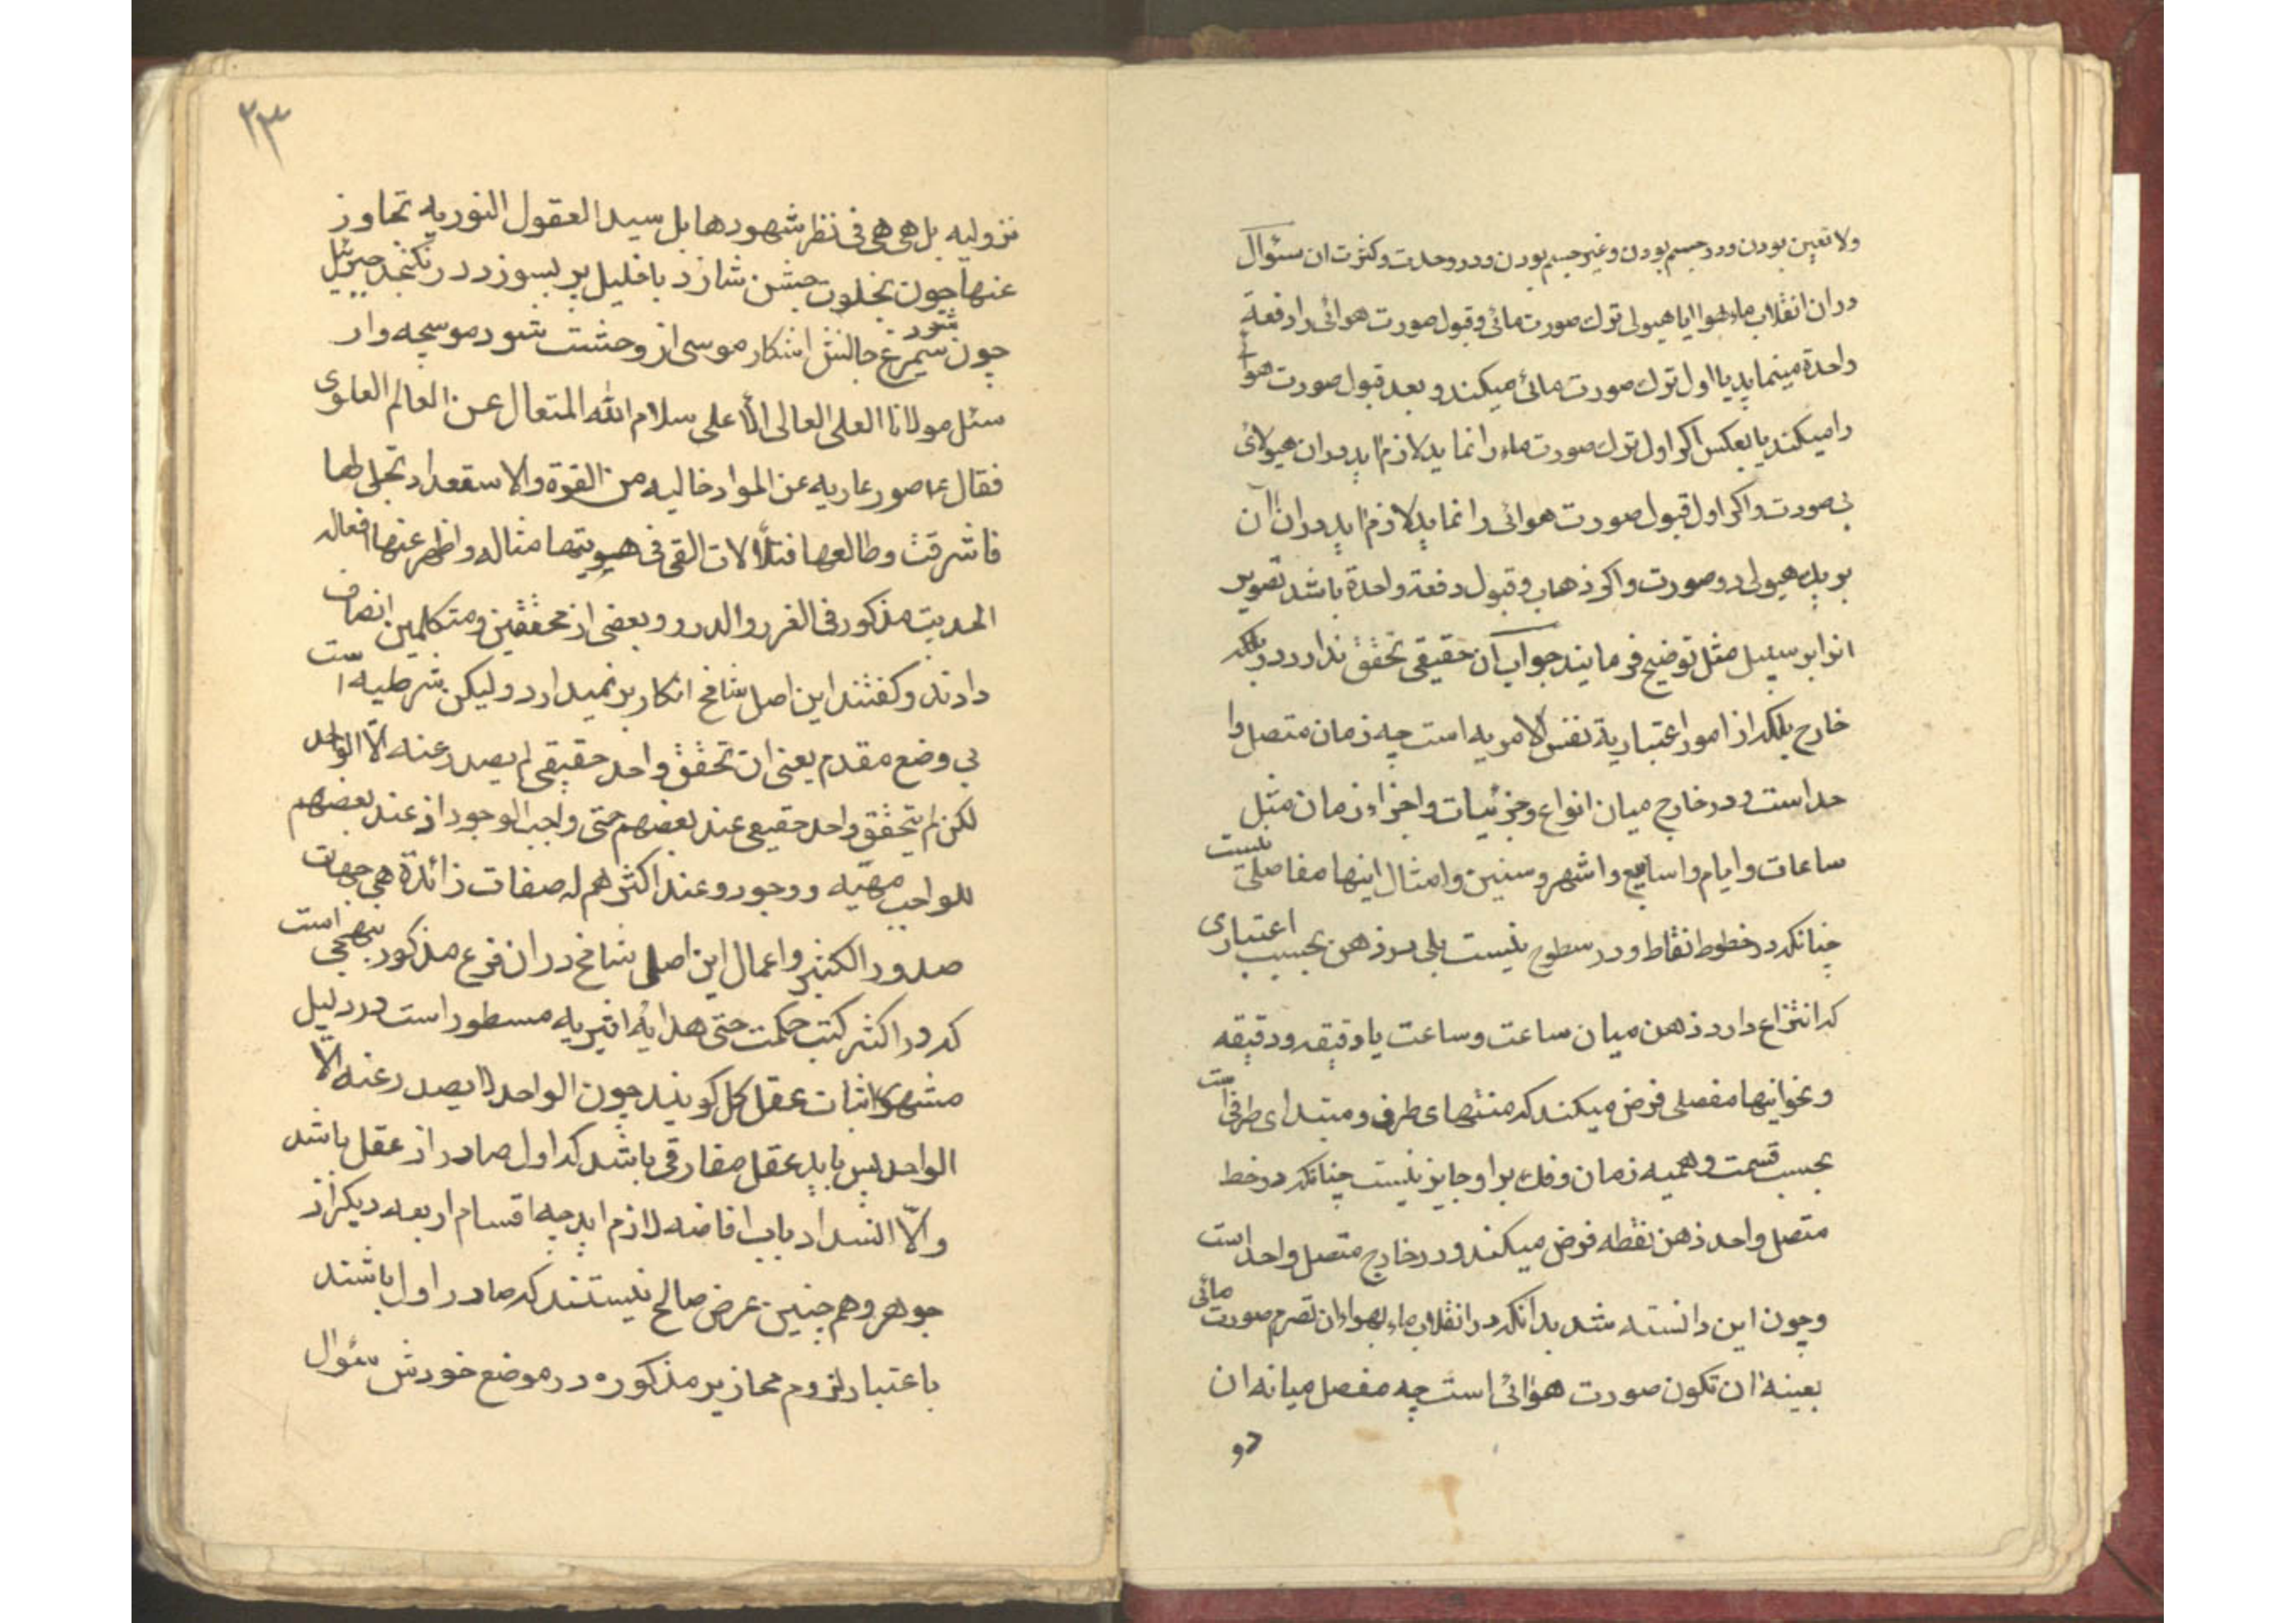 ولا تعین بودن ودر جسم بودن وغیر جسم بودن ودر وحدت وکثرت ان سئوال
دران انقلاب ماء بهوا ایا هیولی ترك صورت مائی وقبول صورت هوائی را دفعة
واحدة مینماید یا اول ترك صورت مائی میکند و بعد قبول صورت هوائی
را میکند یا بعکس اکر اول ترك صورت ماء را نماید لازم اید دران هیولای
بی صورت واکر اول قبول صورت هوائی را نماید لازم اید دران آن
بر یك هیولی دو صورت واکر ذهاب وقبول دفعة واحدة باشد تصویر
انرا بر سبیل مثل توضیح فرمایند جواب آن حقیقی تحقق ندارد در
خارج بلکه از امور اعتباریة نفس الامریه است چه زمان متصل وا
حد است ودر خارج میان انواع وجزئیات واجزاء زمان مثل
ساعات وایام واسابیع واشهر وسنین وامثال اینها مفاصلی نیست
چنانکه در خطوط نقاط ودر سطوح نیست بلی در ذهن بحسب اعتباری
که انتزاع دارد ذهن میان ساعت وساعت یا دقیقه ودقیقه
ونحو اینها مفصلی فرض میکند که منتهای طرفی ومبتدای طرفی است
بحسب قسمت وهمیه زمان وفك بر او جایز نیست چنانکه در خط
متصل واحد ذهن نقطه فرض میکند ودر خارج متصل واحد است
وچون این دانسته شد بدانکه در انقلاب ماء بهواء ان تصرم صورت مائی
بعینه ان تکون صورت هوائی است چه مفصل میانه ان
دو
۲۳
نزولیه بل هی هی فی نظر شهودها بل سید العقول النوریه تجاوز
عنها چون بخلوت جشن سازد با خلیل پر بسوزد در نکنجد جبرئیل
چون شود سیمرغ جانش اشکار موسی از وحشت شود موسیجه وار
سئل مولانا العلی العالی الأعلی سلام الله المتعال عن العالم العلوی
فقال ع صور عاریه عن المواد خالیه من القوة والاستعداد تجلی لها
فاشرقت وطالعها فتلألات القی فی هویتها مثاله واظهر عنها افعاله
الحدیث مذکور فی الغرر والدرر وبعضی از محققین ومتکلمین انصاف
دادند وکفتند این اصل شامخ انکار بر نمیدارد ولیکن شرطیه است
بی وضع مقدم یعنی ان تحقق واحد حقیقی لم یصدر عنه الّا الواحد
لکن لم یتحقق واحد حقیقی عند بعضهم حتی واجب الوجود اذ عند بعضهم
للواجب مهیّه ووجود وعند اکثرهم له صفات زائدة هی جهات
صدور الکثیر واعمال این اصل شامخ در ان فرع مذکور نبهجی است
که در اکثر کتب حکمت حتی هدایهٔ اثیریه مسطور است در دلیل
مشهور اثبات عقل کل کویند چون الواحد لا یصدر عنه الّا
الواحد پس باید عقل مفارقی باشد که اول صادر از عقل باشد
والّا انسداد باب افاضه لازم اید چه اقسام اربعه دیکر از
جوهر وهم چنین عرض صالح نیستند که صادر اول باشند
باعتبار لزوم محاذیر مذکوره در موضع خودش سئوال